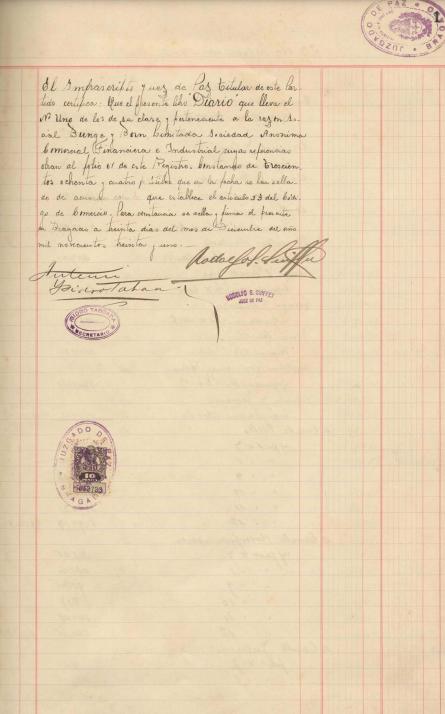 JUZGADO DE PAZ
BRAGADO
El Infrascripto Juez de Paz Titular de este Par-
tido certifica: Que el presente libro "Diario" que lleva el
Nº Uno de los de su clase y perteneciente a la razon So-
cial Bunge y Born Limitada Sociedad Anonima
Comercial, Financiera e Industrial cuyas referencias
obran al folio 61 de este Registro. Constando de Trescien-
tos ochenta y cuatro fs. utiles que en la fecha se han sella-
do de acuerdo con lo que establece el articulo 53 del Codi-
go de Comercio. Para constancia se sella y firma el presente
en Bragado a treinta dias del mes de Diciembre del año
mil novecientos treinta y uno.-
Ante mi
RODOLFO S. CUFFET
JUEZ DE PAZ
SECRETARIO
JUZGADO DE PAZ
BRAGADO
10